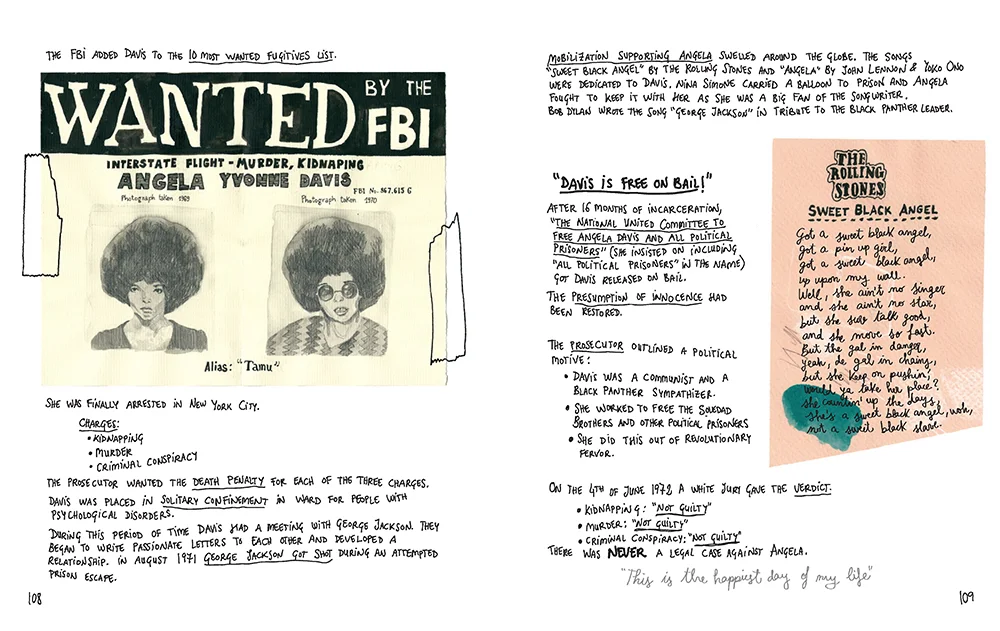 THE FBI ADDED DAVIS TO THE 10 MOST WANTED FUGITIVES LIST.
WANTED BY THE FBI
INTERSTATE FLIGHT - MURDER, KIDNAPING
ANGELA YVONNE DAVIS
FBI No. 867,615 G
Photograph taken 1969
Photograph taken 1970
Alias: "Tamu"
SHE WAS FINALLY ARRESTED IN NEW YORK CITY.
CHARGES:
• KIDNAPPING
• MURDER
• CRIMINAL CONSPIRACY
THE PROSECUTOR WANTED THE DEATH PENALTY FOR EACH OF THE THREE CHARGES.
DAVIS WAS PLACED IN SOLITARY CONFINEMENT IN WARD FOR PEOPLE WITH
PSYCHOLOGICAL DISORDERS.
DURING THIS PERIOD OF TIME DAVIS HAD A MEETING WITH GEORGE JACKSON. THEY
BEGAN TO WRITE PASSIONATE LETTERS TO EACH OTHER AND DEVELOPED A
RELATIONSHIP. IN AUGUST 1971 GEORGE JACKSON GOT SHOT DURING AN ATTEMPTED
PRISON ESCAPE.
108
MOBILIZATION SUPPORTING ANGELA SWELLED AROUND THE GLOBE. THE SONGS
"SWEET BLACK ANGEL" BY THE ROLLING STONES AND "ANGELA" BY JOHN LENNON & YOKO ONO
WERE DEDICATED TO DAVIS. NINA SIMONE CARRIED A BALLOON TO PRISON AND ANGELA
FOUGHT TO KEEP IT WITH HER AS SHE WAS A BIG FAN OF THE SONGWRITER.
BOB DYLAN WROTE THE SONG "GEORGE JACKSON" IN TRIBUTE TO THE BLACK PANTHER LEADER.
"DAVIS IS FREE ON BAIL!"
AFTER 16 MONTHS OF INCARCERATION,
"THE NATIONAL UNITED COMMITTEE TO
FREE ANGELA DAVIS AND ALL POLITICAL
PRISONERS" (SHE INSISTED ON INCLUDING
"ALL POLITICAL PRISONERS" IN THE NAME)
GOT DAVIS RELEASED ON BAIL.
THE PRESUMPTION OF INNOCENCE HAD
BEEN RESTORED.
THE PROSECUTOR OUTLINED A POLITICAL
MOTIVE:
• DAVIS WAS A COMMUNIST AND A
BLACK PANTHER SYMPATHIZER.
• SHE WORKED TO FREE THE SOLEDAD
BROTHERS AND OTHER POLITICAL PRISONERS
• SHE DID THIS OUT OF REVOLUTIONARY
FERVOR.
THE
ROLLING
STONES
SWEET BLACK ANGEL
Got a sweet black angel,
got a pin up girl,
got a sweet black angel,
up upon my wall.
Well, she ain't no singer
and she ain't no star,
but she sure talk good,
and she move so fast.
But the gal in danger,
yeah, de gal in chains,
but she keep on pushin',
would ya take her place?
she countin' up the days,
she's a sweet black angel, woh,
not a sweet black slave.
ON THE 4TH OF JUNE 1972 A WHITE JURY GAVE THE VERDICT:
• KIDNAPPING: "NOT GUILTY"
• MURDER: "NOT GUILTY"
• CRIMINAL CONSPIRACY: "NOT GUILTY"
THERE WAS NEVER A LEGAL CASE AGAINST ANGELA.
"This is the happiest day of my life"
109